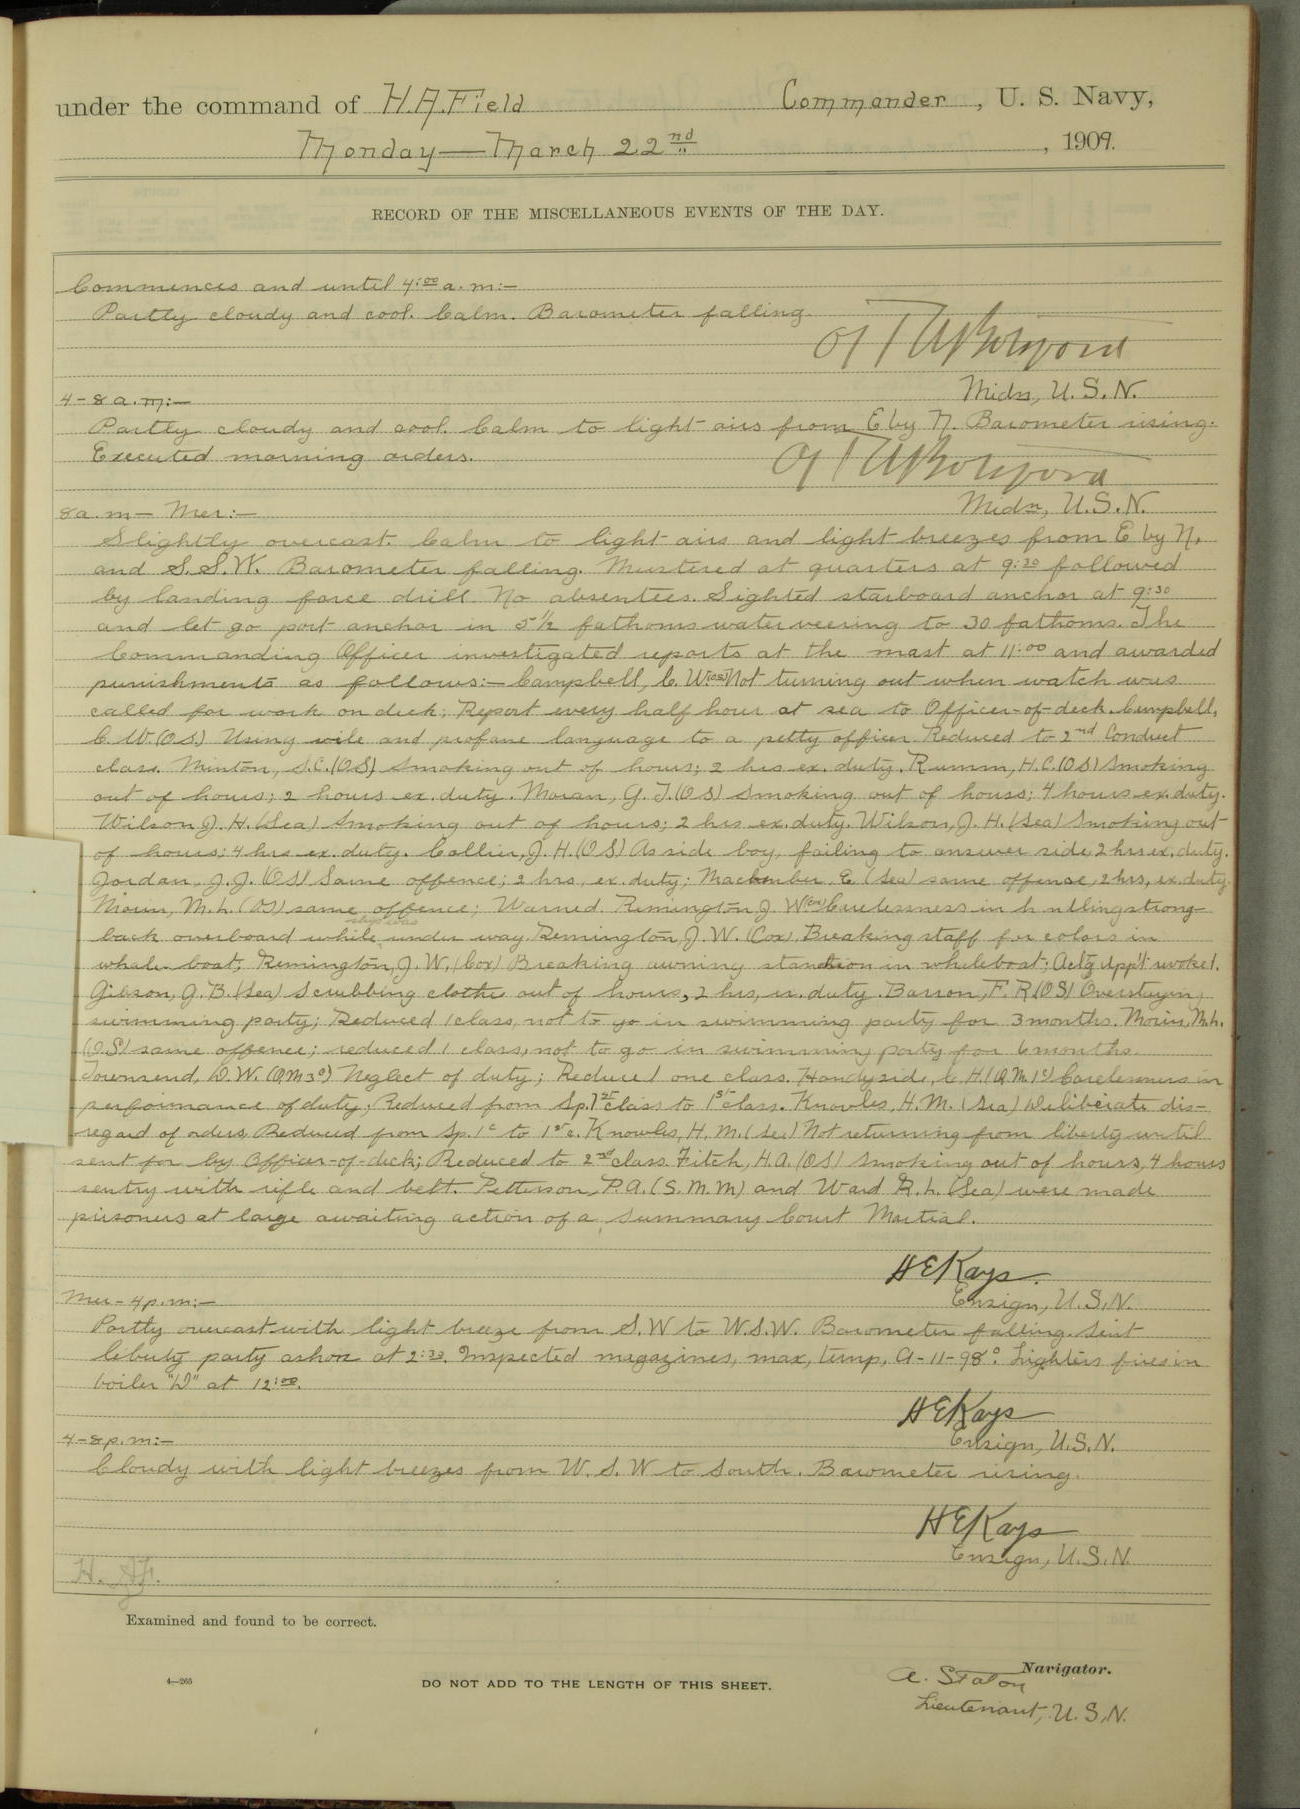 under the command of H.A.Field Commander, U. S. Navy,
Monday—March 22nd, 1909.
RECORD OF THE MISCELLANEOUS EVENTS OF THE DAY.
Commences and until 4:00 a.m:—
Partly cloudy and cool. Calm. Barometer falling.
Midn, U.S.N.
4-8 a.m:—
Partly cloudy and cool. Calm to light airs from E by N. Barometer rising.
Executed morning orders.
Midn, U.S.N.
8 a.m— Mer:—
Slightly overcast. Calm to light airs and light breezes from E by N.
and S.S.W. Barometer falling. Mustered at quarters at 9:30 followed
by landing force drill. No absentees. Sighted starboard anchor at 9:30
and let go port anchor in 5 1/2 fathoms water veering to 30 fathoms. The
Commanding Officer investigated reports at the mast at 11:00 and awarded
punishments as follows:— Campbell, C. W.(OS) Not turning out when watch was
called for work on deck; Report every half hour at sea to Officer-of-deck. Campbell,
C. W.(OS) Using vile and profane language to a petty officer Reduced to 2nd Conduct
class. Minton, S.C.(OS) Smoking out of hours; 2 hrs ex. duty. Rumm, H.C.(OS) Smoking
out of hours; 2 hours ex. duty. Moran, G. J.(OS) Smoking out of hours; 4 hours ex. duty.
Wilson J. H.(Sea) Smoking out of hours; 2 hrs ex. duty. Wilson, J. H.(Sea) Smoking out
of hours; 4 hrs ex. duty. Collier, J. H.(OS) As side boy, failing to answer side, 2 hrs ex. duty.
Jordan, J. J. (OS) Same offence; 2 hrs, ex. duty; E (Sea) same offense, 2 hrs, ex. duty.
Morin, M. L. (OS) same offence; Warned. Remington J. W(Cox) Carelessness in strong-
back overboard while under way. Remington, J. W. (Cox) Breaking staff for colors in
whale-boat; Remington, J. W. (Cox) Breaking awning stanchion in whaleboat; Act'g App't revoked.
Gibson, G. B. (Sea) Scrubbing clothes out of hours, 2 hrs, ex. duty. Barron, F. R.(OS) Overstaying
swimming party; Reduced 1 class, not to go in swimming party for 3 months. Morin, M. L.
(O.S) same offence; reduced 1 class, not to go in swimming party for 6 months.
Townsend, D. W. (QM3c) Neglect of duty; Reduced one class. Handyside, C. H.(Q.M.1c) Carelessness in
performance of duty, Reduced from Sp. 1st class to 1st class. Knowles, H. M. (Sea) Deliberate dis-
regard of orders, Reduced from Sp. 1c to 1st c. Knowles, H. M. (Sea) Not returning from liberty until
sent for by Officer-of-deck; Reduced to 2nd class. Fitch, H.A.(OS) Smoking out of hours, 4 hours
sentry with rifle and belt. Petterson, P.A. (S.M.M) and Ward R. L. (Sea) were made
prisoners at large awaiting action of a Summary Court Martial.
H E Kays.
Ensign, U.S.N.
Mer-4 p.m:—
Partly overcast with light breeze from S.W to W.S.W. Barometer falling. Sent
liberty party ashore at 2:30. Inspected magazines, max, temp, A-11-98°. Lighters fires in
boiler "D" at 12:00.
H E Kays
Ensign, U.S.N.
4-8 p.m:—
Cloudy with light breezes from W. S. W to South. Barometer rising.
H E Kays
Ensign, U.S.N.
H. A.F.
Examined and found to be correct.
4—265
DO NOT ADD TO THE LENGTH OF THIS SHEET.
A. Staton Navigator.
Lieutenant, U. S. N.